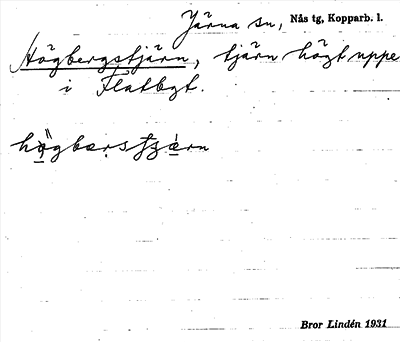 Järna sn, Nås tg, Kopparb. l.
Högbergstjärn, tjärn högt uppe
i Flatbgt.
Bror Lindén 1931